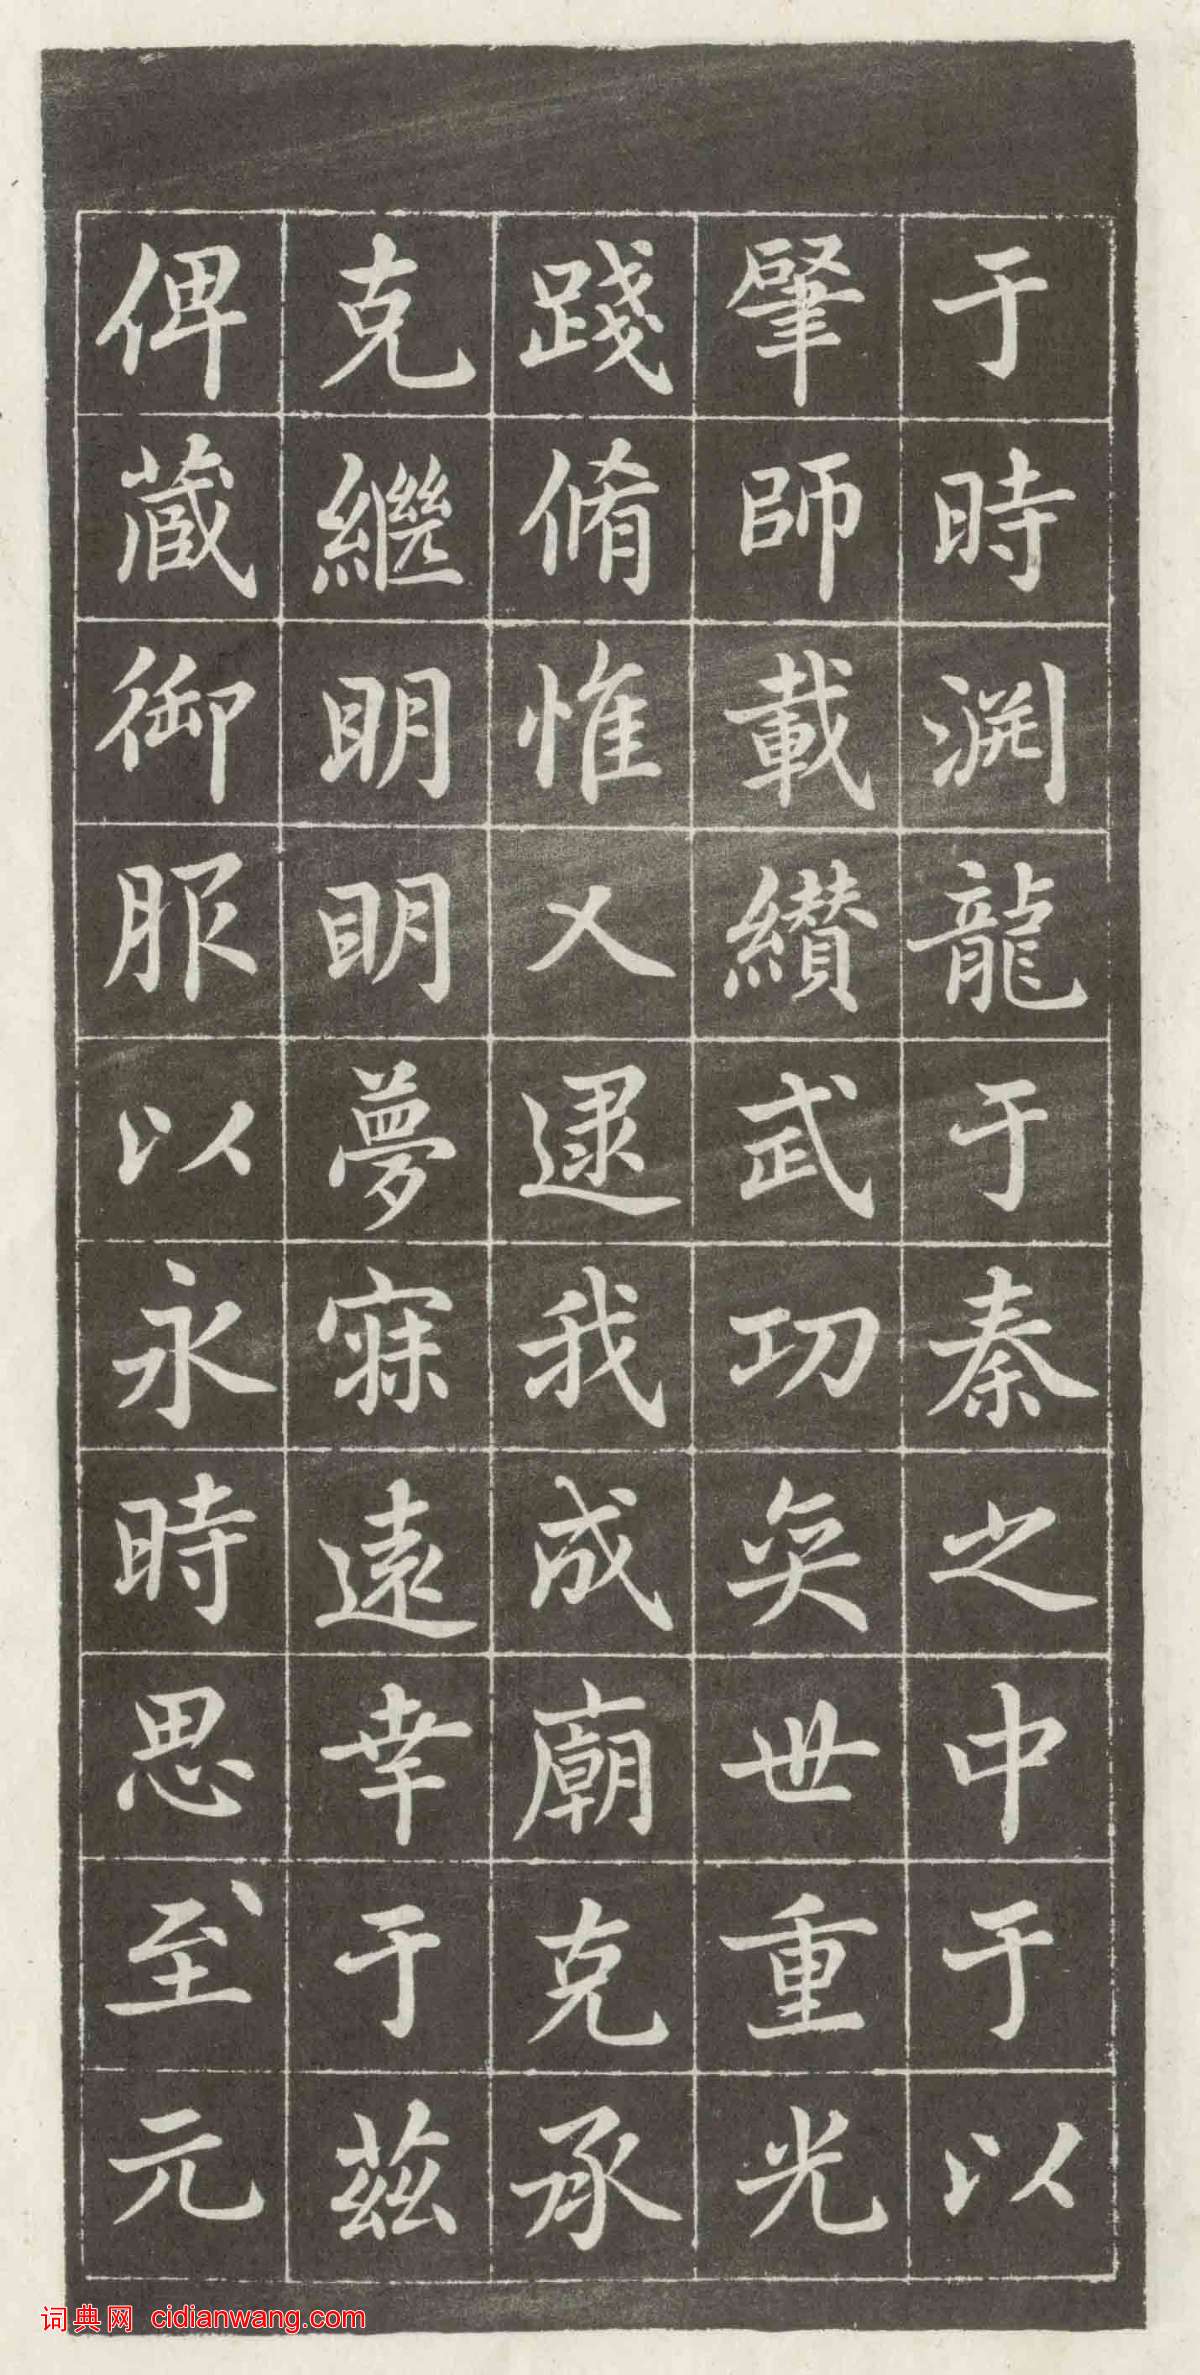 于時渊龍于秦之中于以
肈師載纘武功奕世重光
踐脩惟乂逮我成廟克承
克繼明明夢寐遠幸于茲
俾蔵御服以永時思至元
词典网 cidianwang.com